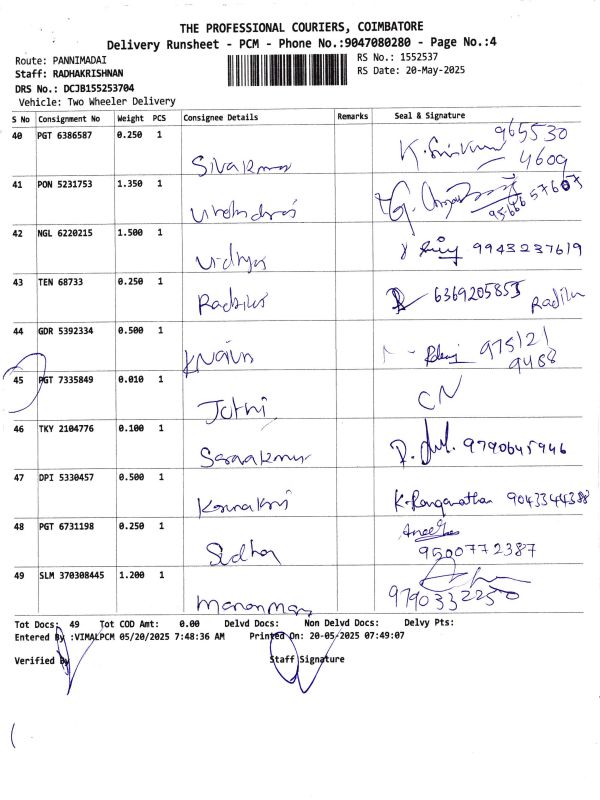 THE PROFESSIONAL COURIERS, COIMBATORE
Delivery Runsheet - PCM - Phone No.:9047080280 - Page No.:4
Route: PANNIMADAI
RS No.: 1552537
Staff: RADHAKRISHNAN
RS Date: 20-May-2025
DRS No.: DCJB155253704
Vehicle: Two Wheeler Delivery
S No Consignment No Weight PCS Consignee Details Remarks Seal & Signature
40 PGT 6386587 0.250 1 965530
4609
41 PON 5231753 1.350 1
42 NGL 6220215 1.500 1 Vidhya 9943237619
43 TEN 68733 0.250 1 6369205853
44 GDR 5392334 0.500 1 975121
9488
45 PGT 7335849 0.010 1 Jothi CN
46 TKY 2104776 0.100 1 9790645946
47 DPI 5330457 0.500 1 K. Ranganathan 9043344388
48 PGT 6731198 0.250 1 Sudha
9500772387
49 SLM 370308445 1.200 1
9790332250
Tot Docs: 49 Tot COD Amt: 0.00 Delvd Docs: Non Delvd Docs: Delvy Pts:
Entered By :VIMALPCM 05/20/2025 7:48:36 AM Printed On: 20-05-2025 07:49:07
Verified By Staff Signature